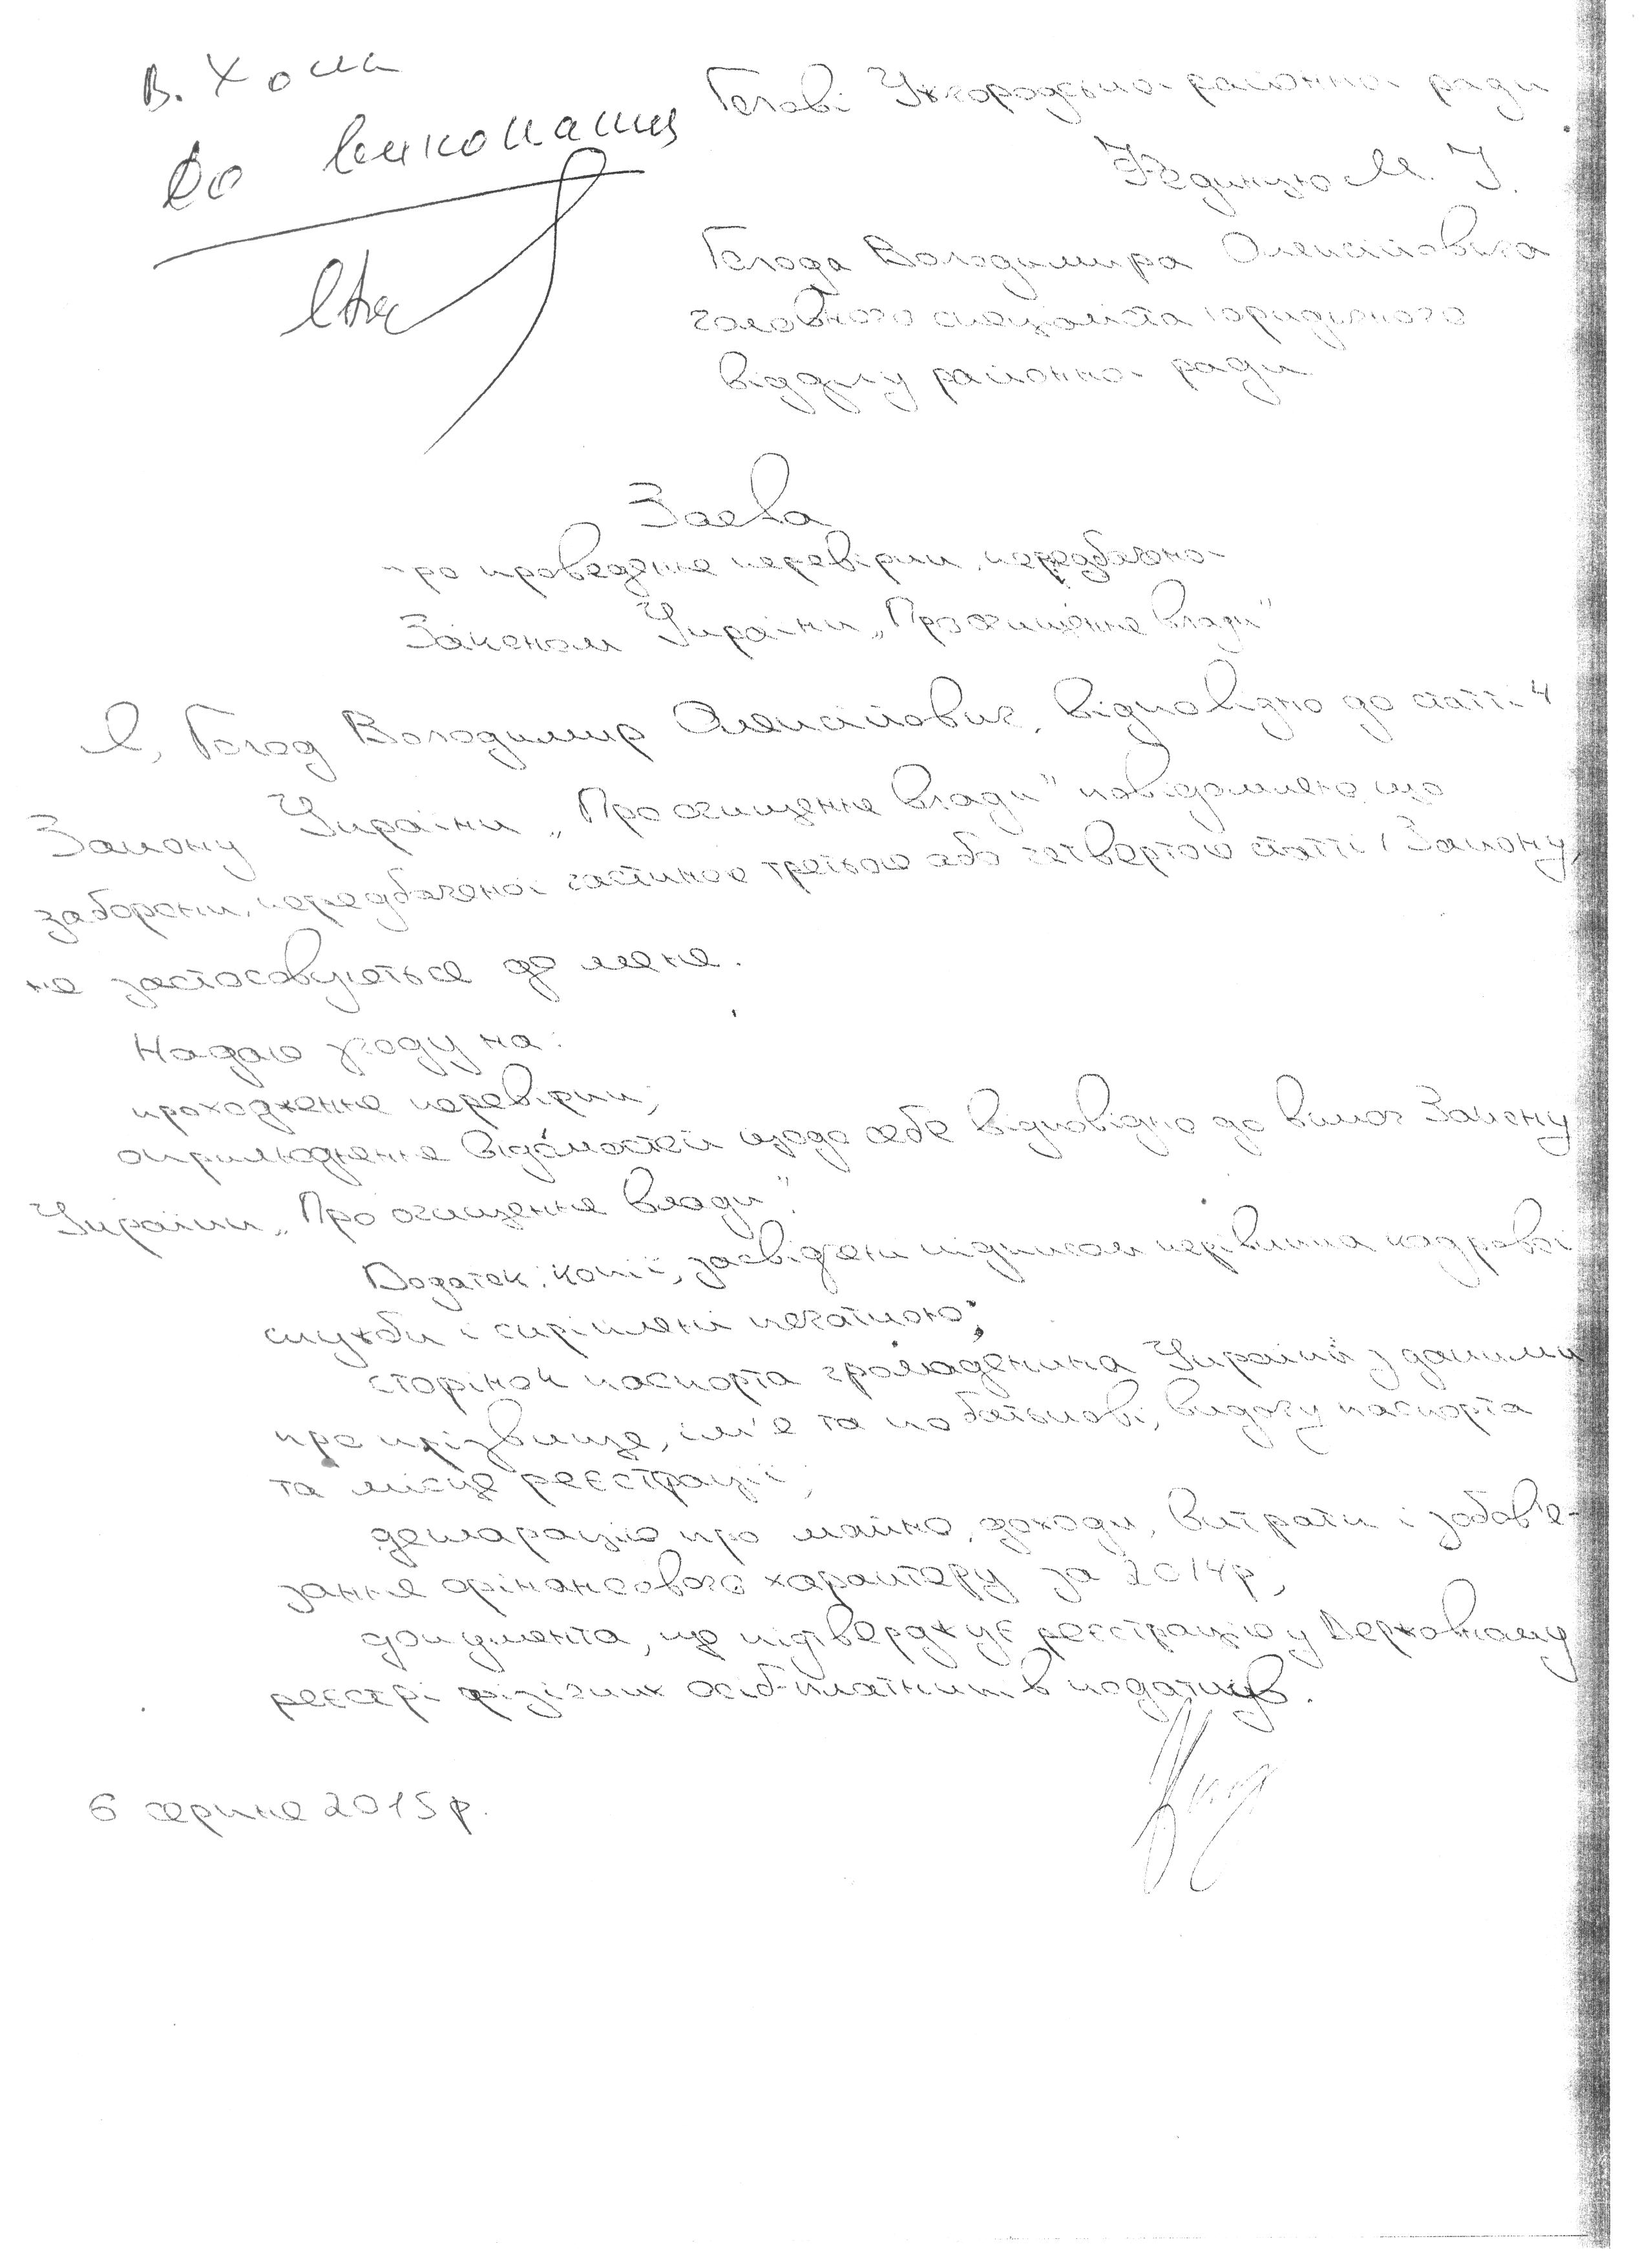 В. Хома
До виконання
Голові Ужгородської районної ради
М. І.
Володимира Олексійовича
головного спеціаліста юридичного
відділу районної ради
Заява
про проведення перевірки, передбаченої
Законом України „Про очищення влади"
Я, Володимир Олексійович, відповідно до статті 4
Закону України „Про очищення влади" повідомляю, що
заборони, передбаченої частиною третьою або четвертою статті 1 Закону,
не застосовується до мене.
Надаю згоду на:
проходження перевірки;
оприлюднення відомостей щодо себе відповідно до вимог Закону
України „Про очищення влади".
Додаток: копії, засвідчені підписом керівника кадрової
служби і скріплені печаткою:
сторінок паспорта громадянина України з даними
про прізвище, ім'я та по батькові, видачу паспорта
та місце реєстрації;
декларацію про майно, доходи, витрати і зобов'я-
зання фінансового характеру за 2014р;
документа, що підтверджує реєстрацію у Державному
реєстрі фізичних осіб-платників податків.
6 серпня 2015р.